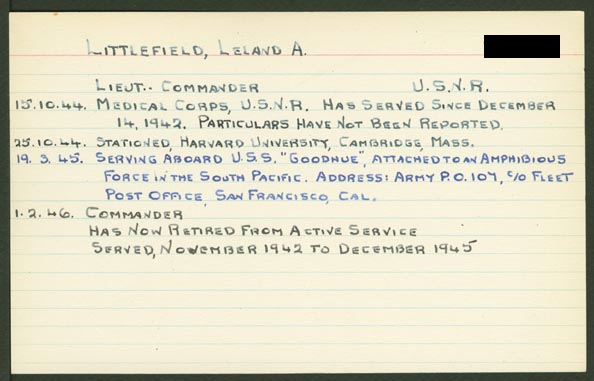 LITTLEFIELD, LELAND A.
LIEUT.. COMMANDER U.S.N.R.
15.10.44. MEDICAL CORPS, U.S.N.R. HAS SERVED SINCE DECEMBER
14, 1942. PARTICULARS HAVE NOT BEEN REPORTED.
25.10.44. STATIONED, HARVARD UNIVERSITY, CAMBRIDGE, MASS.
19. 3. 45. SERVING ABOARD U.S.S. "GOODHUE", ATTACHED TO AN AMPHIBIOUS
FORCE IN THE SOUTH PACIFIC. ADDRESS: ARMY P.O. 107, C/O FLEET
POST OFFICE, SAN FRANCISCO, CAL.
1. 2. 46. COMMANDER
HAS NOW RETIRED FROM ACTIVE SERVICE
SERVED, NOVEMBER 1942 TO DECEMBER 1945